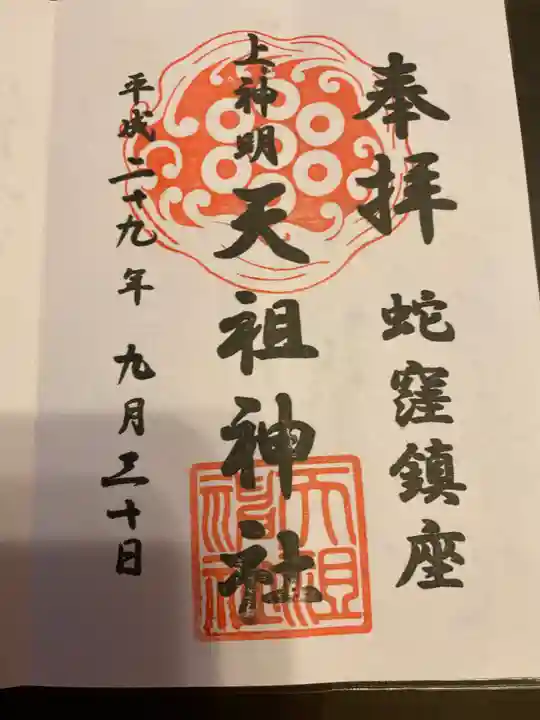 奉拝 蛇窪鎮座
上神明 天祖神社
平成二十九年 九月三十日
天祖神社